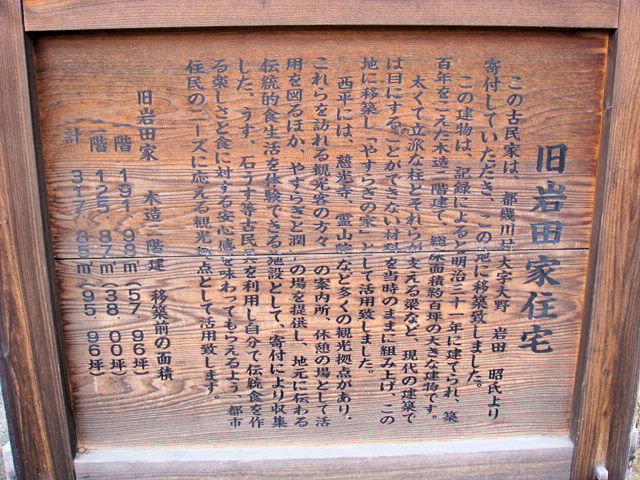 旧岩田家住宅
この古民家は、都幾川村大字大野 岩田 昭氏より
寄付していただき、この地に移築致しました。
この建物は、記録によると明治三十一年に建てられ、築
百年をこえた木造二階建て、総床面積約百坪の大きな建物です。
太くて立派な柱とそれらが支える梁など、現代の建築で
は目にすることができない材料を当時のままに組み上げ、この
地に移築し「やすらぎの家」として活用致しました。
西平には、慈光寺、霊山院など多くの観光拠点があり、
これらを訪れる観光客の方々の案内所、休憩の場として活
用を図るほか、やすらぎと潤の場を提供し、地元に伝わる
伝統的食生活を体験できる施設として、寄付により収集
した、うす、石うす等古民具を利用し自分で伝統食を作
る楽しさと食に対する安心感を味わってもらえるよう、都市
住民のニーズに応える観光拠点として活用致します。
旧岩田家 木造二階建 移築前の面積
一階 191.98㎡(57.96坪)
二階 125.87㎡(38.00坪)
計 317.85㎡(95.96坪)